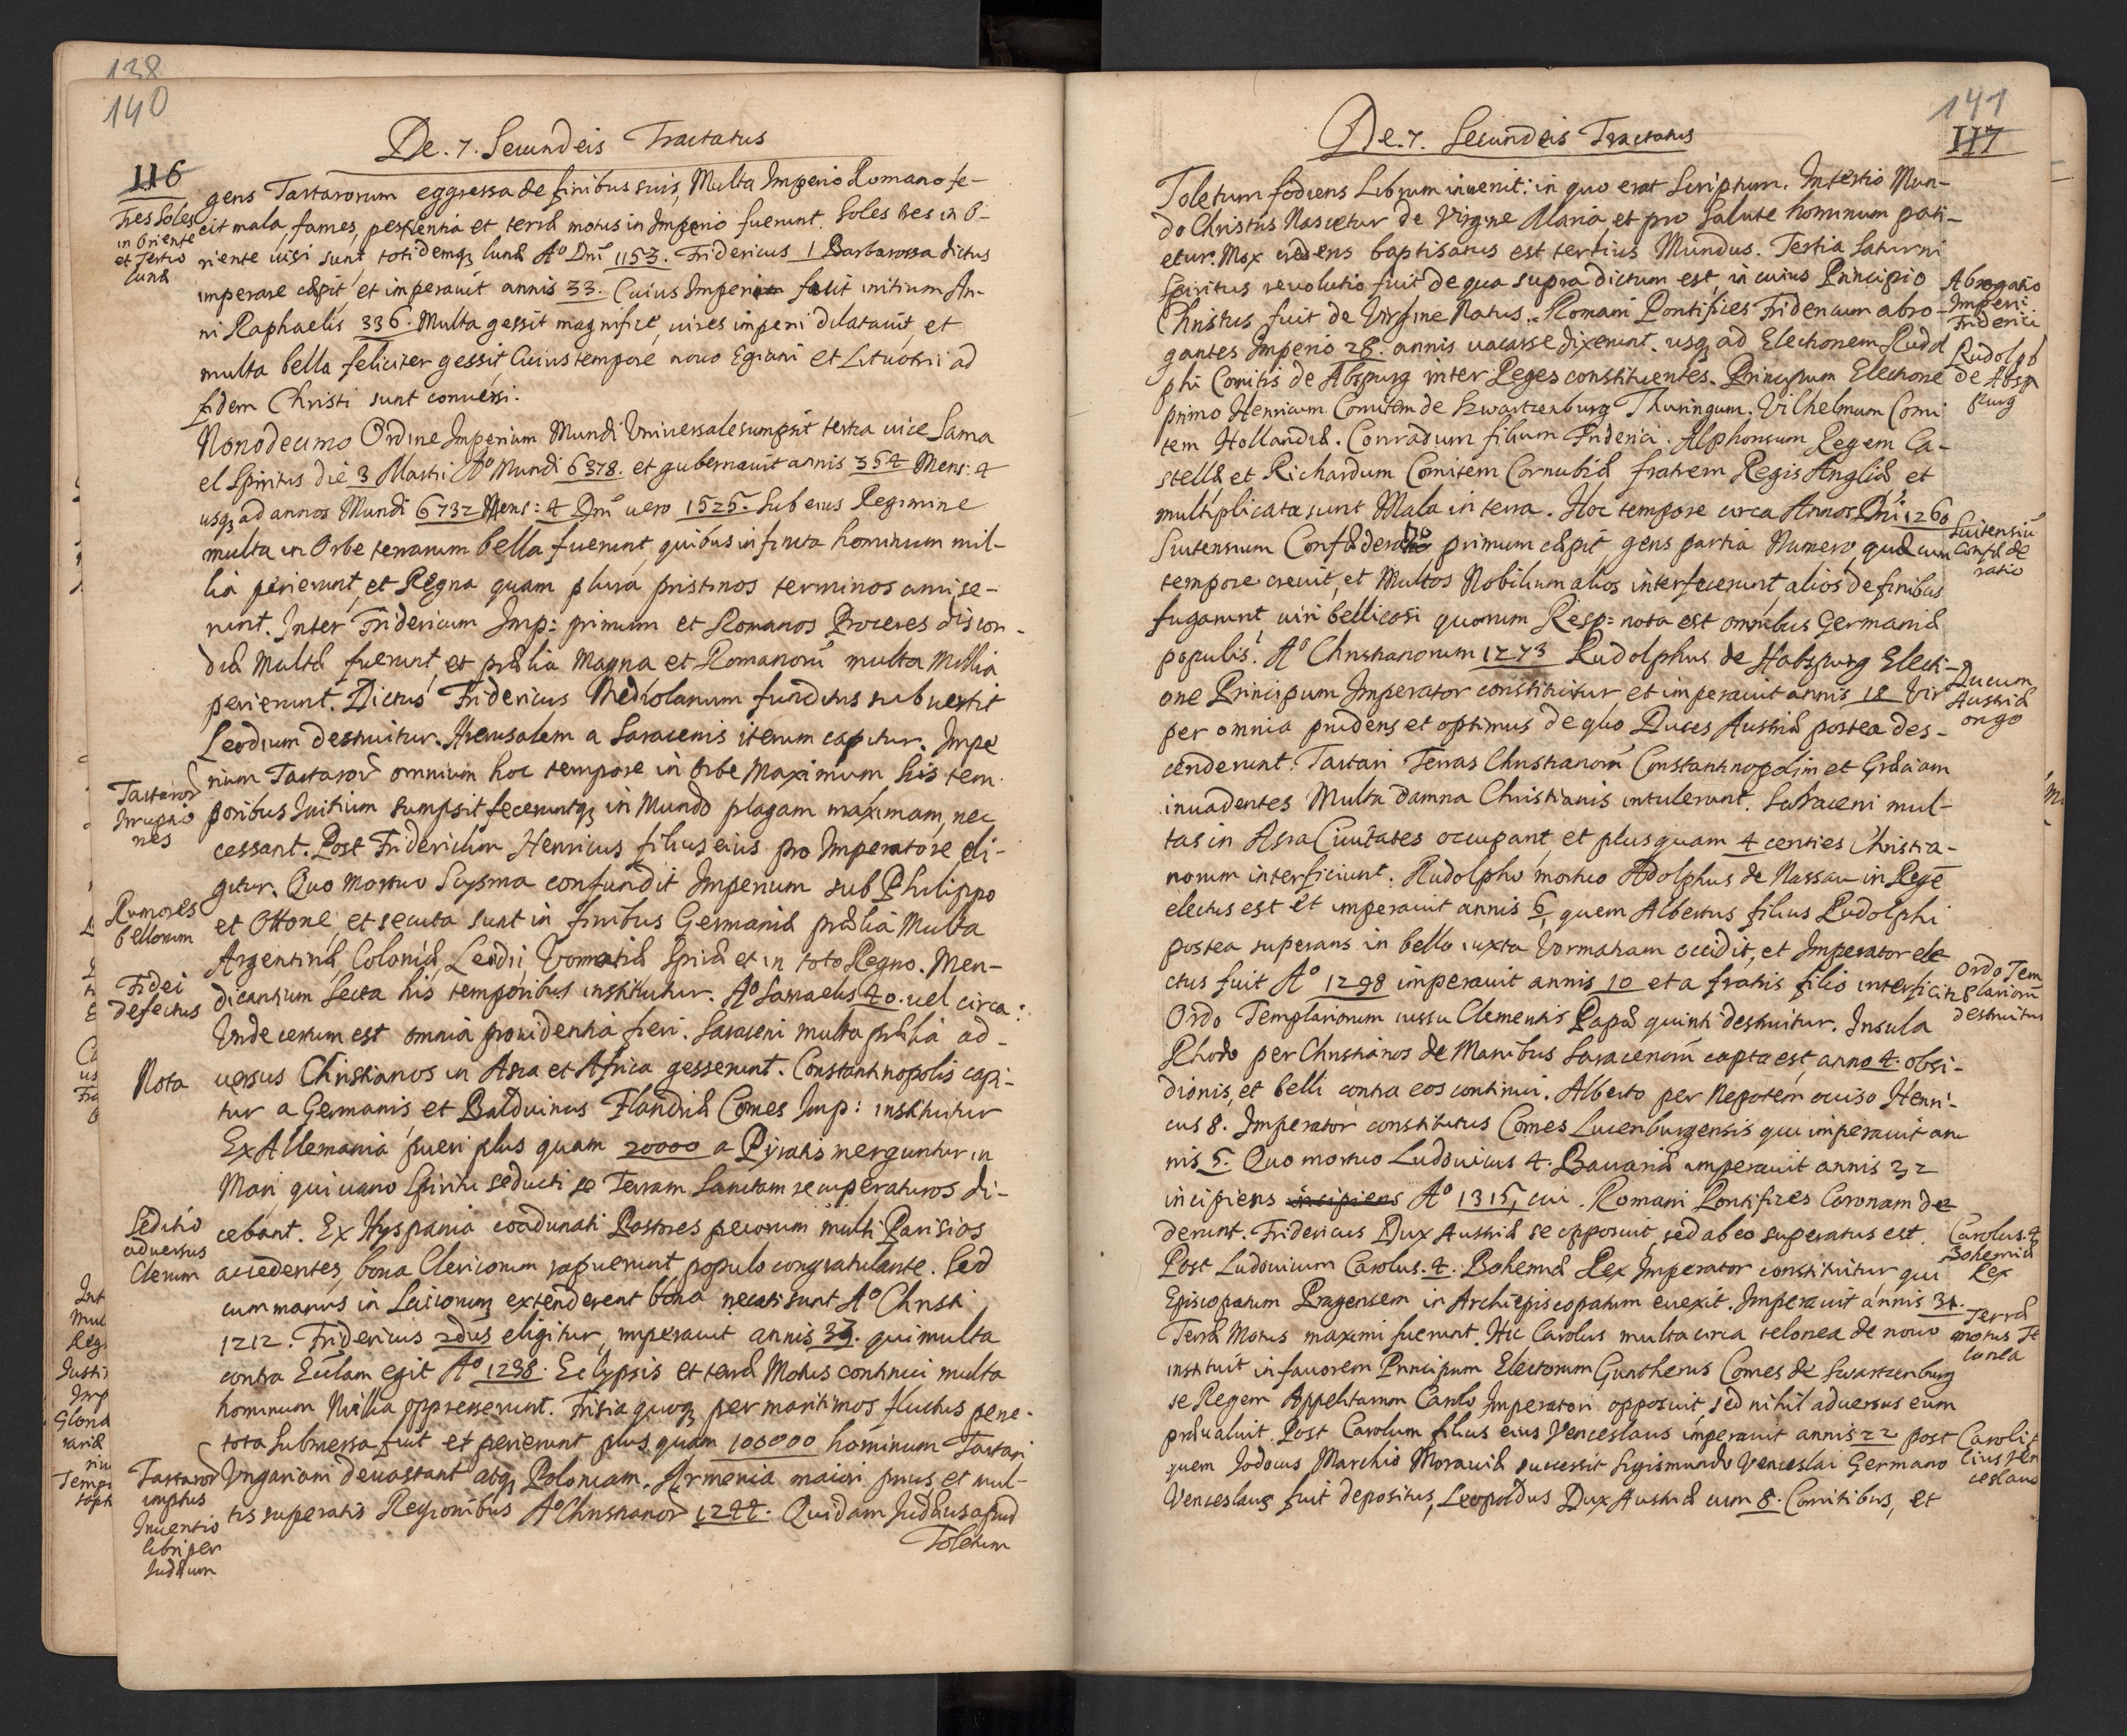 138
140
De. 7. Secundeis Tractatus
116
gens Tartarorum eggressa de finibus suis, Multa Imperio Romano fe-
Tres Soles
in Oriente
et Tertio
luna
cit mala, fames, pestilentia et terræ motus in Imperio fuerunt. Soles tres in O-
riente uisi sunt, totidemq3 lunæ A° Dni 1153. Fridericus 1 Barbarossa dictus
imperare cæpit, et imperauit annis 33. Cuius Imperii fuit initium An-
ni Raphaelis 336. Multa gessit magnificè, uires imperii dilatauit, et
multa bella feliciter gessit Cuius tempore, nouo Egiani et Lituotrii ad
fidem Christi sunt conuersi.
Nonodecimo Ordine Imperium Mundi Vniversale sumpsit tertia uice Sama
el Spiritus die 3 Martii A° Mundi 6378. et gubernauit annis 354 Mens: 4
usq3 ad annos Mundi 6732 Mens: 4 Dni uero 1525. Sub eius Regimine
multa in Orbe terrarum bella fuerunt quibus infinita hominum mil-
lia perierunt, et Regna quam plura pristinos terminos amise-
runt. Inter Fridericum Imp: primum et Romanos Proceres discor-
diæ Multæ fuerunt, et prælia Magna et Romanorū multa Millia
perierunt. Dictus Fridericus Mediolanum funditus subuertit
Leodium destruitur. Hierusalem a Saracenis iterum capitur. Impe
rium Tartarorū omnium hoc tempore in Orbe Maximum his tem-
Tartarorū
Irruptio
nes
poribus Initium sumpsit feceruntq3 in Mundo plagam maximam, nec
cessant. Post Fridericum Henricus filius eius pro Imperatore eli-
gitur. Quo Mortuo Scysma confundit Imperium sub Philippo
Rumores
bellorum
et Ottone, et secuta sunt in finibus Germaniæ prælia Multa
Argentinæ, Coloniæ, Leodii, Vormatiæ Spiræ et in toto Regno. Men-
Fidei
defectus
dicantium Secta his temporibus instituitur. A° Samaelis 40. uel circa:
Vnde certum est omnia prouidentia fieri. Saraceni multa prælia ad-
Nota
uersus Christianos in Asia et Africa gesserunt. Constantinopolis capi-
tur a Germanis et Balduinus Flandriæ Comes Imp: instituitur
Ex Allemania pueri plus quam 20000 a Pyratis merguntur in
Mari qui uano Spiritu seducti se Terram Sanctam recuperaturos di-
Seditio
aduersus
Clerum
cebant. Ex Hyspania coadunati Pastores pecorum multi Parisios
accedentes, bona Clericorum rapuerunt populo congratulante. Sed
cum manus in Laicorum extenderent bona necati sunt A° Christi
1212. Fridericus 2dus eligitur, imperauit annis 33. qui multa
contra Ecclam egit A° 1238. Eclypsis et terræ Motus continui multa
hominum Millia oppresserunt. Frisia quoq3 per maritimos fluctus pene-
tota Submersa fuit et perierunt plus quam 100000 hominum Tartari
Tartarorū
impetus
Vngariam deuastant atq3 Poloniam. Armenia maiori prius, et mul-
tis superatis Regionibus A° Christianorū 1244. Quidam Iudæus apud
Inuentio
libri per
Iudæum
Toletum
141
117
De. 7. Secundeis Tractatus
Toletum fodiens Librum inuenit: in quo erat Scriptum. In tertio Mun-
do Christus Nascetur de Virgine Maria, et pro Salute hominum pati-
etur. Mox credens baptisatus est tertius Mundus. Tertia Saturni
Spiritus reuolutio fuit de qua supra dictum est, in cuius Principio
Christus fuit de Virgine Natus. Romani Pontifices Fridericum abro-
Abrogatio
Imperii
Friderici
gantes Imperio 28. annis uacasse dixerunt. usq3 ad Electionem Rudol
phi Comitis de Abspurg inter Reges constituentes. Principum Electione
Rudolph
de Absp
purg
primo Henricum Comitem de Szwartzenburg Thuringum. Vilhelmum Comi
tem Hollandiæ. Conradum filium Friderici. Alphonsum Regem Ca-
stellæ et Richardum Comitem Cornubiæ fratrem Regis Angliæ et
multiplicata sunt Mala in terra. Hoc tempore circa Annos Dni 1260
Suitensium Confæderatio primum cæpit, gens parua Numero, quæ cum
Suitensiū
Confæde
ratio
tempore creuit, et Multos Nobilium alios interfecerunt, alios de finibus
fugarunt uiri bellicosi quorum Resp: nota est omnibus Germaniæ
populis. A° Christianorum 1273 Rudolphus de Habspurg Electi-
one Principum Imperator constituitur et imperauit annis 18 Vir
Ducum
Austriæ
origo
per omnia prudens et optimus de quo Duces Austriæ postea des-
cenderunt. Tartari Terras Christianorū Constantinopolim et Græciam
inuadentes Multa damna Christianis intulerunt. Saraceni mul-
tas in Asia Ciuitates occupant, et plusquam 4 centies Christia-
norum interficiunt. Rudolpho mortuo Adolphus de Nassau in Regē
electus est et imperauit annis 6, quem Albertus filius Rudolphi
postea superans in bello iuxta Vormatiam occidit, et Imperator ele
ctus fuit A° 1298 imperauit annis 10 et a fratris filio interficit2
Ordo Tem
plariorū
destruitur
Ordo Templariorum iussu Clementis Papæ quinti destruitur. Insula
Rhodo per Christianos de Manibus Saracenorū capta est, anno 4. obsi-
dionis, et belli contra eos continui. Alberto per Nepotem occiso Henri-
cus 8. Imperator constitutus Comes Lucenburgensis qui imperauit an
nis 5. Quo mortuo Ludouicus 4. Bauariæ imperauit annis 32
incipiens incipiens A° 1315, cui Romani Pontifices Coronam de
derunt. Fridericus Dux Austriæ se opposuit, sed ab eo superatus est.
Carolus. 4
Bohemiæ
Rex
Post Ludouicum Carolus. 4. Bohemiæ Rex Imperator constituitur, qui
Episcopatum Pragensem in Archiepiscopatum euexit. Imperauit annis 31.
Terræ Motus maximi fuerunt. Hic Carolus multa circa telonea de nouo
Terræ
motus Te
lonea
instituit in fauorem Principum Electorum Guntherus Comes de Swartzenburg
se Regem Appellitarum Carolo Imperatori opposuit, sed nihil aduersus eum
præualuit. Post Carolum filius eius Venceslaus imperauit annis 22 post
quem Iodocus Marchio Morauiæ successit Sigismundo Venceslai Germano
Venceslaus fuit depositus, Leopoldus Dux Austriæ cum 8. Comitibus, et